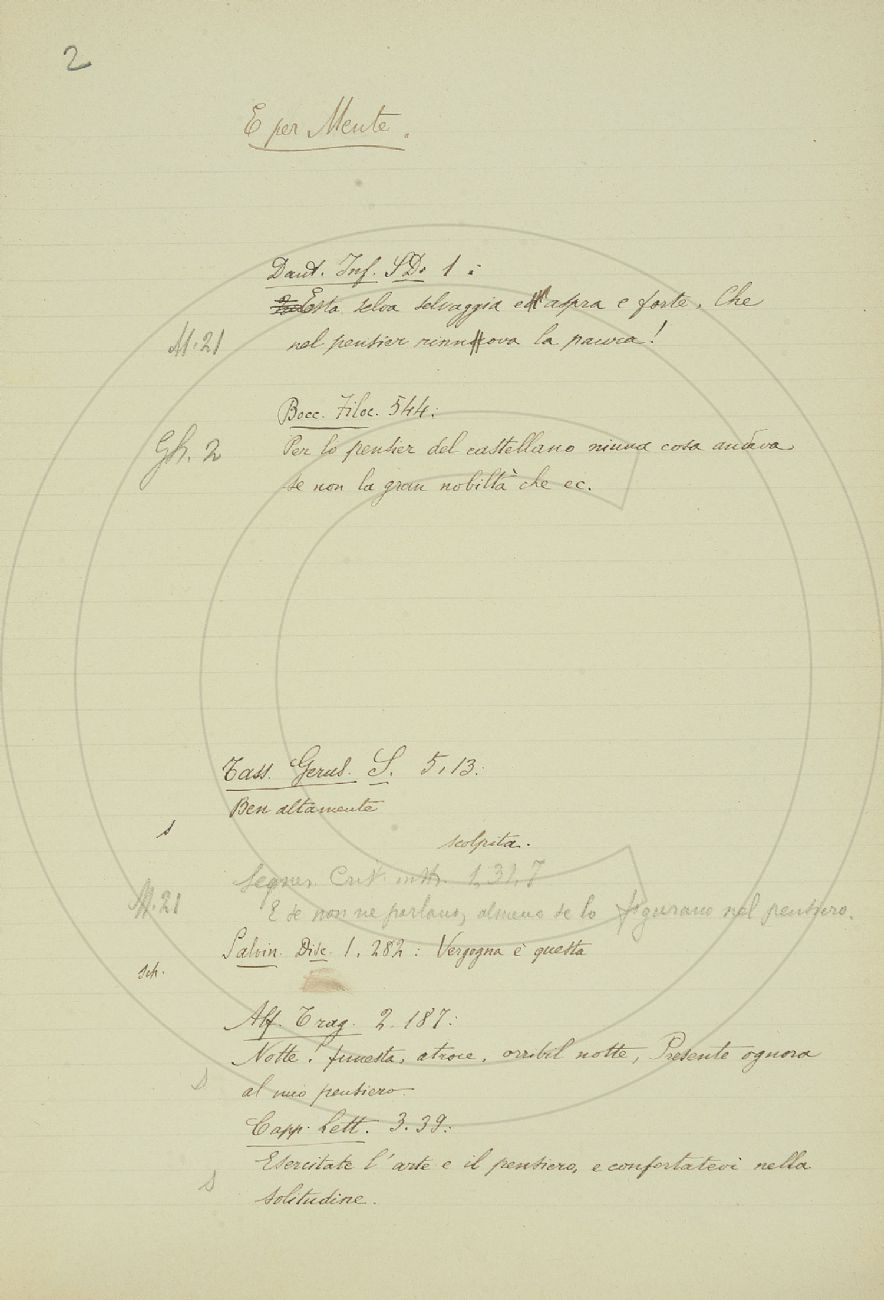 2
E per Mente.
Dant. Inf. 1:
Esta selva selvaggia ed aspra e forte, Che
M. 21 nel pensier rinnova la paura!
Bocc. Filoc. 544:
Gh. 2 Per lo pensier del castellano niuna cosa andava
se non la gran nobiltà che ec.
Tass. Gerus. S. 5, 13:
Ben altamente
s scolpita.
Segner. Crist. instr. 1, 31, 7
M. 21 E se non ne parlano, almeno se lo figurano nel pensiero.
Salvin. Disc. 1. 282: Vergogna è questa
sch.
Alf. Trag. 2. 187:
Notte! funesta, atroce, orribil notte, Presente ognora
al mio pensiero.
Capp. Lett. 3. 39:
Esercitate l'arte e il pensiero, e confortatevi nella
s solitudine.